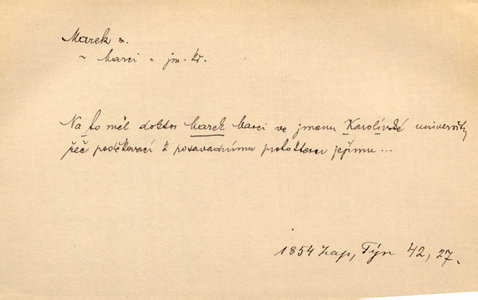 Marek m.
~ Marci ~ jm. kř.
Na to měl doktor Marek Marci ve jmenu Karolínské university
řeč poděkovací k posavadnímu protektoru jejímu...
1854 Zap, Týn 42, 27.